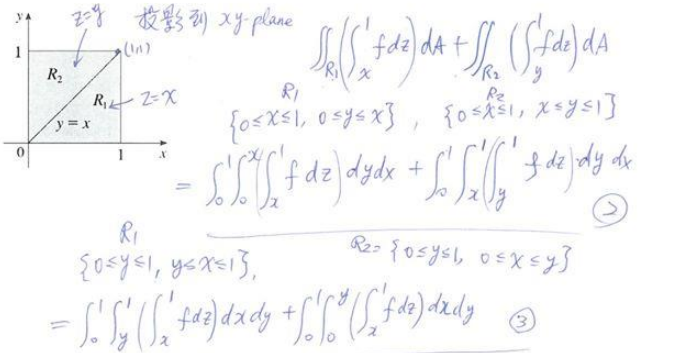 y
z=y 投影到 xy-plane
1
(1,1)
R₂
R₁
z=x
y = x
0
1
x
∬_{R₁} (∫_x^1 f dz) dA + ∬_{R₂} (∫_y^1 f dz) dA
R₁ R₂
{0≤x≤1, 0≤y≤x} , {0≤x≤1, x≤y≤1}
= ∫_0^1 ∫_0^x (∫_x^1 f dz) dy dx + ∫_0^1 ∫_x^1 (∫_y^1 f dz) dy dx
②
R₁
{0≤y≤1, y≤x≤1}, R₂= {0≤y≤1, 0≤x≤y}
= ∫_0^1 ∫_y^1 (∫_x^1 f dz) dx dy + ∫_0^1 ∫_0^y (∫_x^1 f dz) dx dy ③